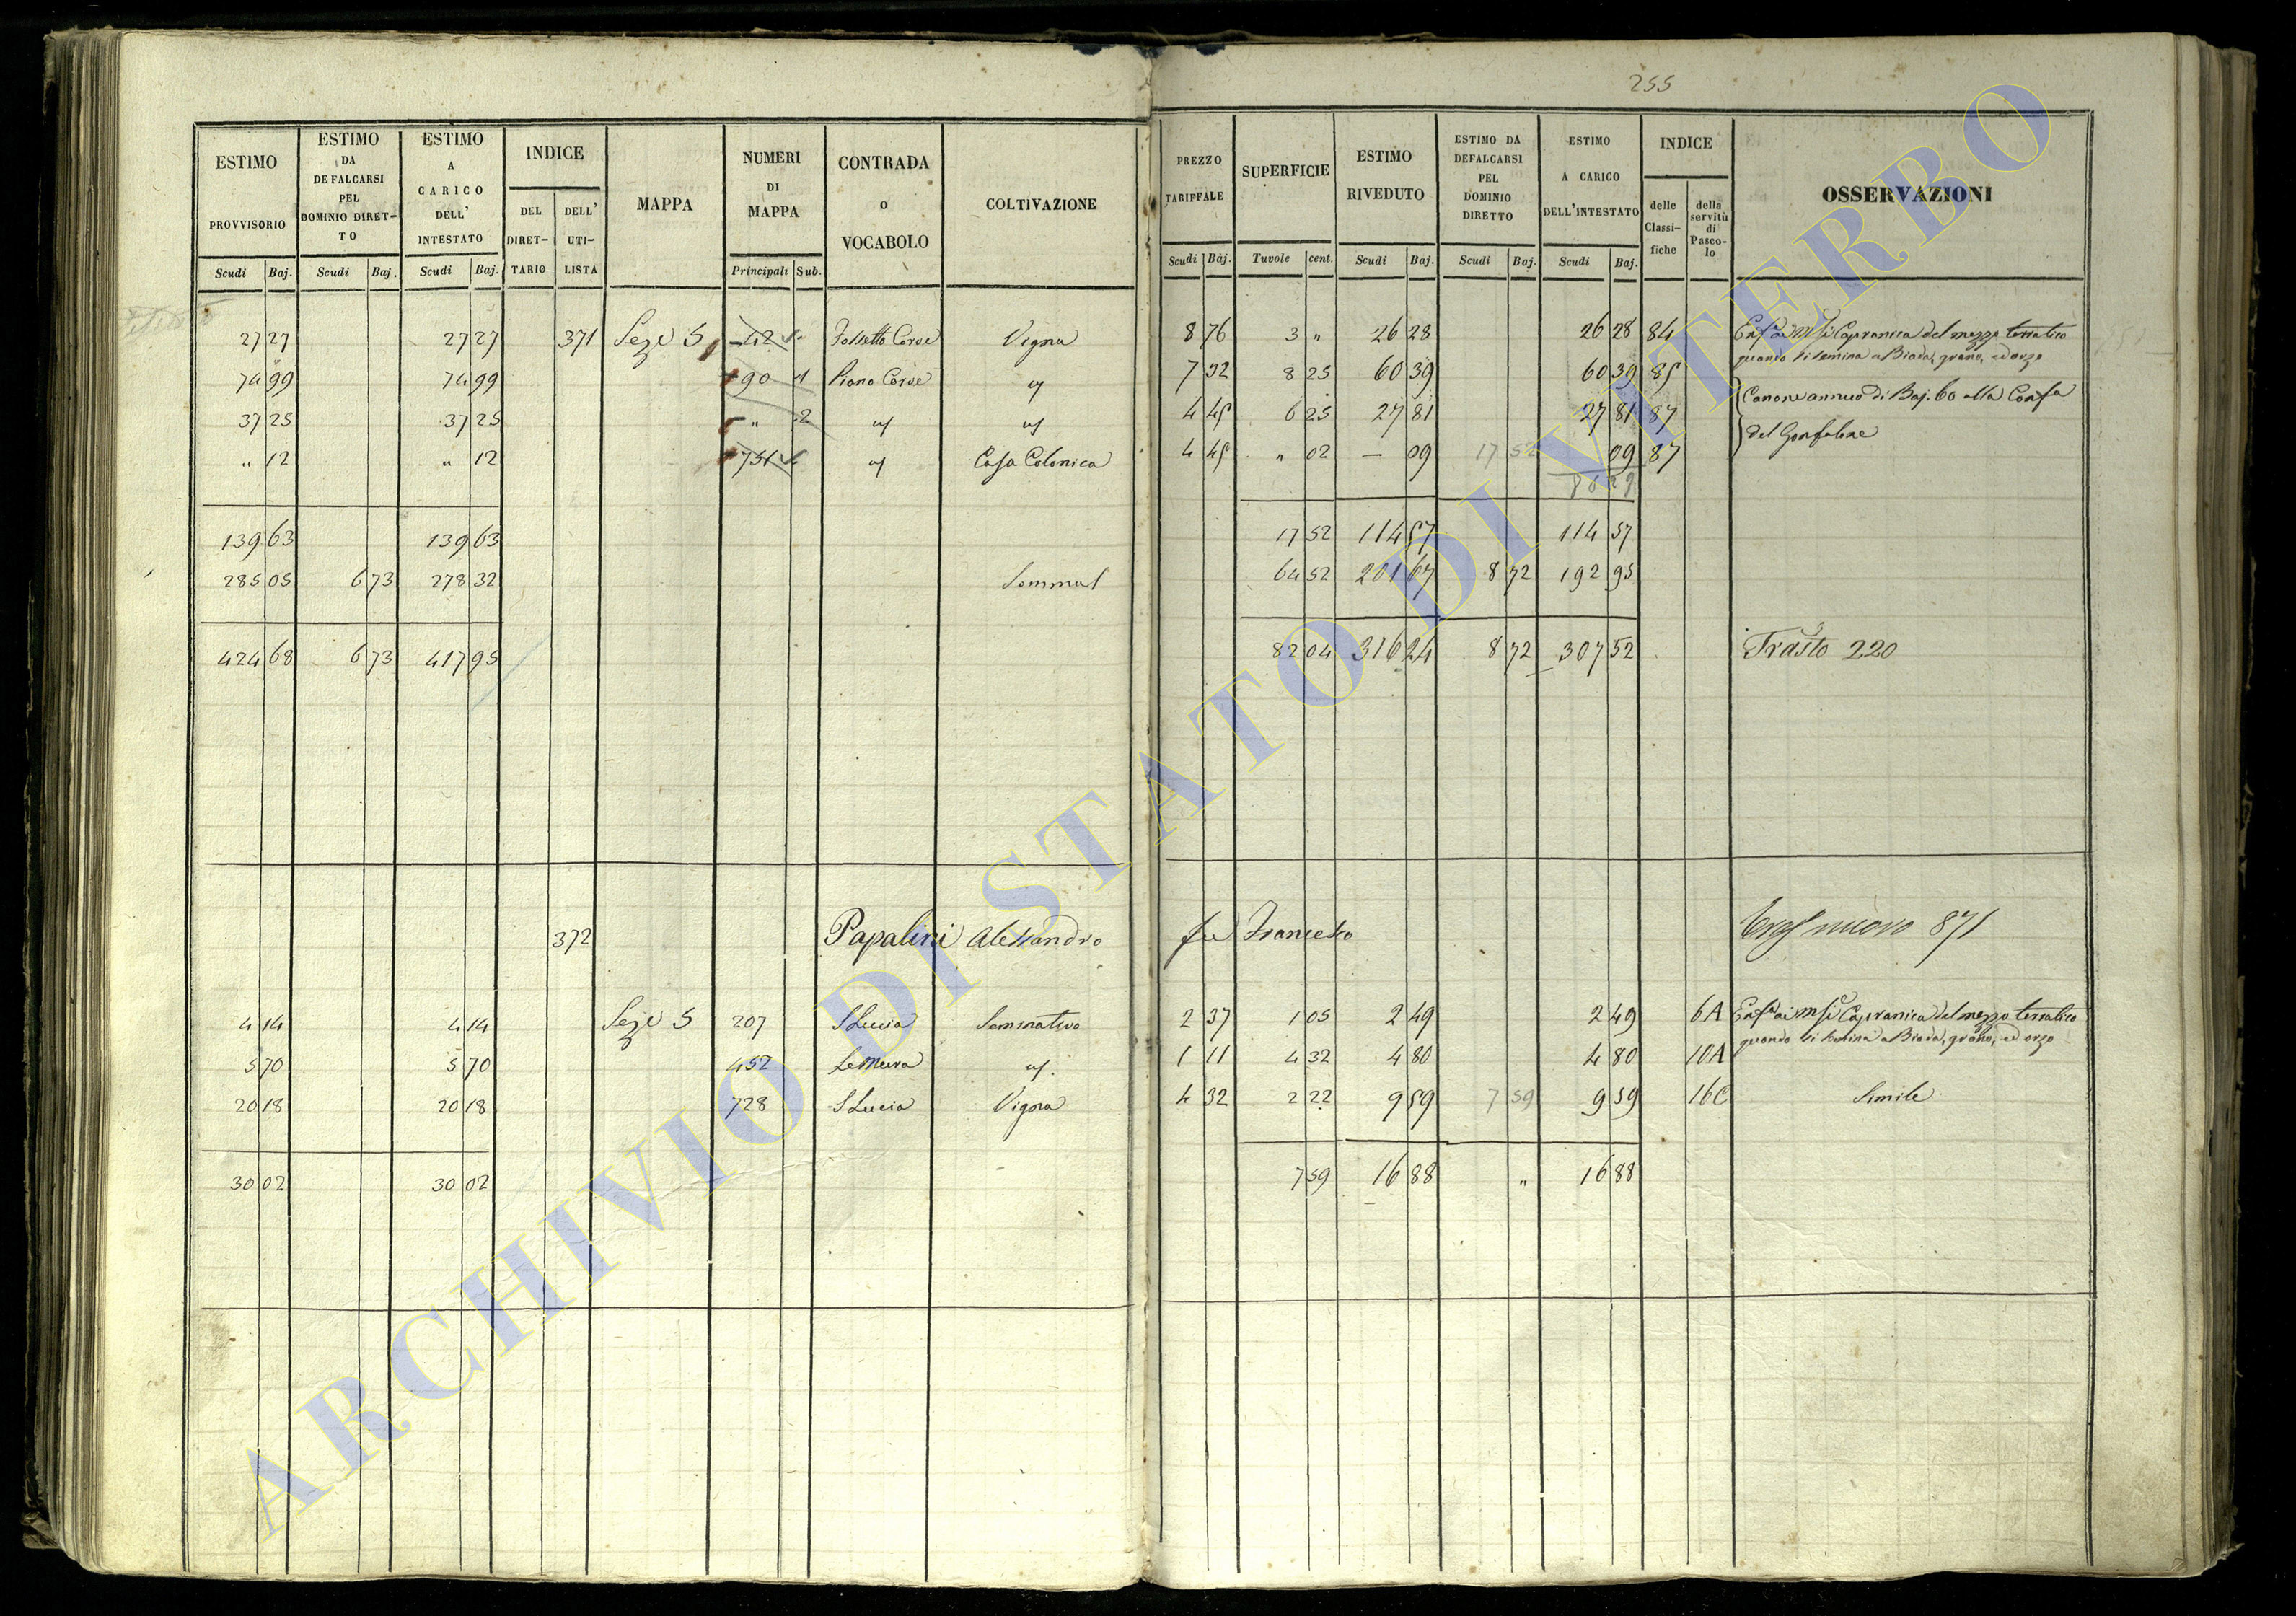 255
ESTIMO PROVVISORIO | ESTIMO DA DEFALCARSI PEL DOMINIO DIRETTO | ESTIMO A CARICO DELL' INTESTATO | INDICE | MAPPA | NUMERI DI MAPPA | CONTRADA o VOCABOLO | COLTIVAZIONE | PREZZO TARIFFALE | SUPERFICIE | ESTIMO RIVEDUTO | ESTIMO DA DEFALCARSI PEL DOMINIO DIRETTO | ESTIMO A CARICO DELL'INTESTATO | INDICE | OSSERVAZIONI
DEL DIRETTARIO | DELL' UTILISTA | delle Classifiche | della servitù di Pascolo
Scudi | Baj. | Scudi | Baj. | Scudi | Baj. | Principali | Sub. | Scudi | Baj. | Tavole | cent. | Scudi | Baj. | Scudi | Baj. | Scudi | Baj.
27 27 | 27 27 | 371 | Seze 5 | 42 | Fossetto Corve | Vigna | 8 76 | 3 " | 26 28 | 26 28 | 84 | Capranica del mezzo terratico
quando si semina a Biada, grano, ed orzo
74 99 | 74 99 | 90 1 | Piano Corve | " | 7 32 | 8 25 | 60 39 | 60 39 | 85
37 25 | 37 25 | " 2 | " | " | 4 45 | 6 25 | 27 81 | 27 81 | 87 | Canone annuo di Baj. 60 alla Confa
" 12 | " 12 | 751 | " | Casa Colonica | 4 45 | " 02 | — 09 | 17 52 | 09 | 87 | del Gonfalone
139 63 | 139 63 | 17 52 | 114 57 | 114 57
285 05 | 6 73 | 278 32 | 64 52 | 201 67 | 8 72 | 192 95
424 68 | 6 73 | 417 95 | 82 04 | 316 24 | 8 72 | 307 52 | Trasto 220
372 | Papalini Alessandro | fu Francesco | nuovo 871
4 14 | 4 14 | Seze 5 | 207 | S Lucia | Seminativo | 2 37 | 1 05 | 2 49 | 2 49 | 6A | Capranica del mezzo terratico
quando si semina a Biada, grano, ed orzo
5 70 | 5 70 | 452 | Le Mura | " | 1 11 | 4 32 | 4 80 | 4 80 | 10A
20 18 | 20 18 | 728 | S Lucia | Vigna | 4 32 | 2 22 | 9 59 | 7 59 | 9 59 | 16C | Simile
30 02 | 30 02 | 7 59 | 16 88 | " | 16 88
ARCHIVIO DI STATO DI VITERBO